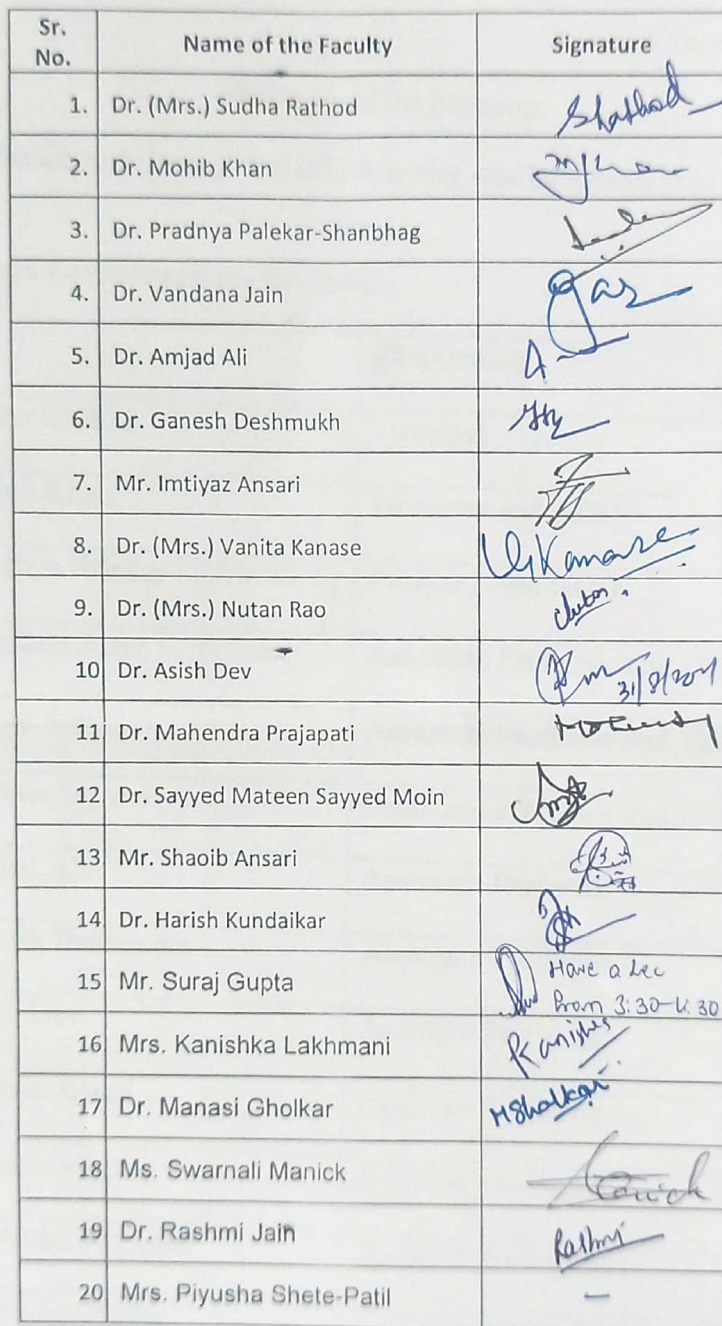 Sr. No. Name of the Faculty Signature
1. Dr. (Mrs.) Sudha Rathod SRathod
2. Dr. Mohib Khan
3. Dr. Pradnya Palekar-Shanbhag
4. Dr. Vandana Jain
5. Dr. Amjad Ali
6. Dr. Ganesh Deshmukh
7. Mr. Imtiyaz Ansari
8. Dr. (Mrs.) Vanita Kanase Kanase
9. Dr. (Mrs.) Nutan Rao
10 Dr. Asish Dev
11 Dr. Mahendra Prajapati
12 Dr. Sayyed Mateen Sayyed Moin
13 Mr. Shaoib Ansari
14 Dr. Harish Kundaikar
15 Mr. Suraj Gupta Have a Lec
from 3:30-4:30
16 Mrs. Kanishka Lakhmani
17 Dr. Manasi Gholkar MGholkar
18 Ms. Swarnali Manick Manick
19 Dr. Rashmi Jain Rashmi
20 Mrs. Piyusha Shete-Patil –